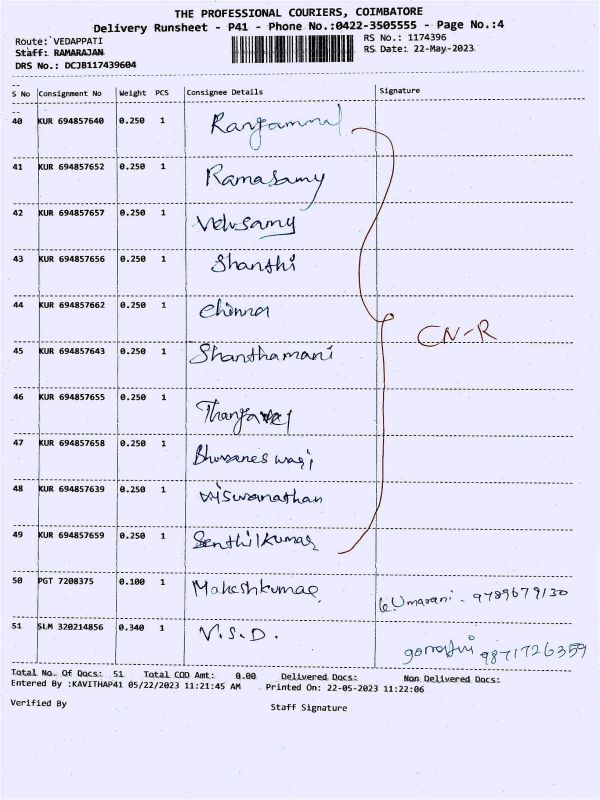 THE PROFESSIONAL COURIERS, COIMBATORE
Delivery Runsheet - P41 - Phone No.:0422-3505555 - Page No.:4
Route: VEDAPPATI RS No.: 1174396
Staff: RAMARAJAN RS Date: 22-May-2023
DRS No.: DCJB117439604
S No Consignment No Weight PCS Consignee Details Signature
40 KUR 694857640 0.250 1 Rangammal
41 KUR 694857652 0.250 1 Ramasamy
42 KUR 694857657 0.250 1 Velusamy
43 KUR 694857656 0.250 1 Shanthi
44 KUR 694857662 0.250 1 Chinna
CN-R
45 KUR 694857643 0.250 1 Shanthamani
46 KUR 694857655 0.250 1 Thangavel
47 KUR 694857658 0.250 1 Bhuvaneswari
48 KUR 694857639 0.250 1 Viswanathan
49 KUR 694857659 0.250 1 Senthilkumar
50 PGT 7208375 0.100 1 Maheshkumar K.Umarani. 9789679130
51 SLM 320214856 0.340 1 V.S.D. 9871726359
Total No. Of Docs: 51 Total COD Amt: 0.00 Delivered Docs: Non Delivered Docs:
Entered By :KAVITHAP41 05/22/2023 11:21:45 AM Printed On: 22-05-2023 11:22:06
Verified By Staff Signature